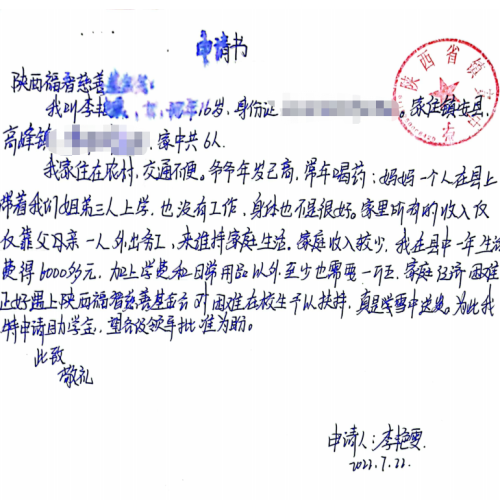 申请书
陕西福智慈善基金会:
我叫李艳,女,现年16岁,身份证。家住镇安县
高峰镇,家中共6人。
我家住在农村,交通不便。爷爷年岁已高,常年喝药;妈妈一个人在县上
带着我们姐弟三人上学,也没有工作,身体也不是很好。家里所有的收入仅
仅靠父亲一人外出务工,来维持家庭生活。家庭收入较少,我在县中一年生活
费得6000多元,加上学费和日常用品以外至少也需要一万,家庭经济困难
正好遇上陕西福智慈善基金会对困难在校生予以扶持,真是学雪中送炭。为此我
特申请助学金,望各级领导批准为盼。
此致
敬礼
申请人:李艳雯
2022.7.22.
陕西省镇